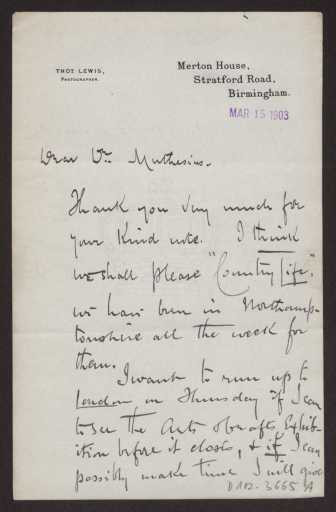 THOS LEWIS,
PHOTOGRAPHER.
Merton House,
Stratford Road,
Birmingham.
MAR 15 1903
Dear Mr. Muthesius.
Thank you very much for
your kind note. I think
we shall please "Country Life".
we have been in Northamp-
tonshire all the week for
them.
I want to run up to
London on Thursday if I can
to see the Arts & Crafts Exhib-
ition before it closes, & if I can
possibly make time I will give
D 102-3665